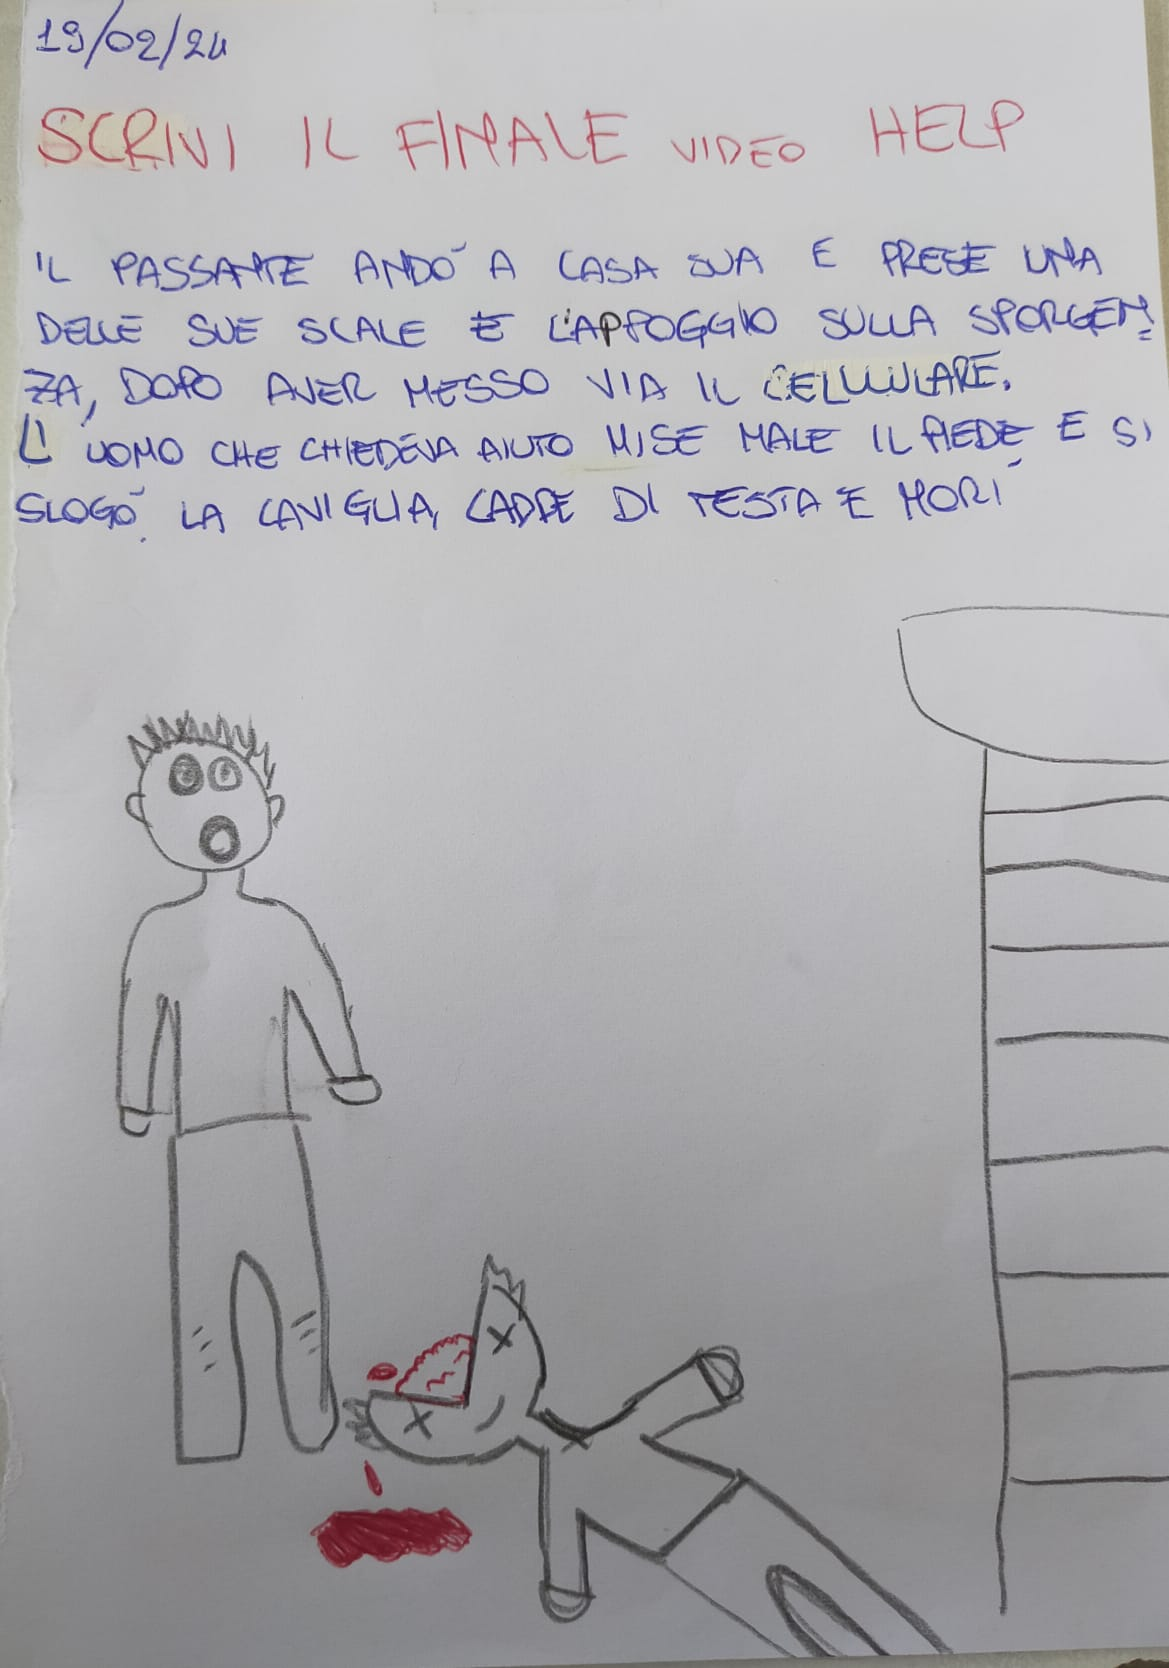 19/02/24
SCRIVI IL FINALE VIDEO HELP
IL PASSANTE ANDÒ A CASA SUA E PRESE UNA
DELLE SUE SCALE E L'APPOGGIO SULLA SPORGEN=
ZA, DOPO AVER MESSO VIA IL CELLULARE.
L'UOMO CHE CHIEDEVA AIUTO MISE MALE IL PIEDE E SI
SLOGÒ LA CAVIGLIA, CADDE DI TESTA E MORÌ